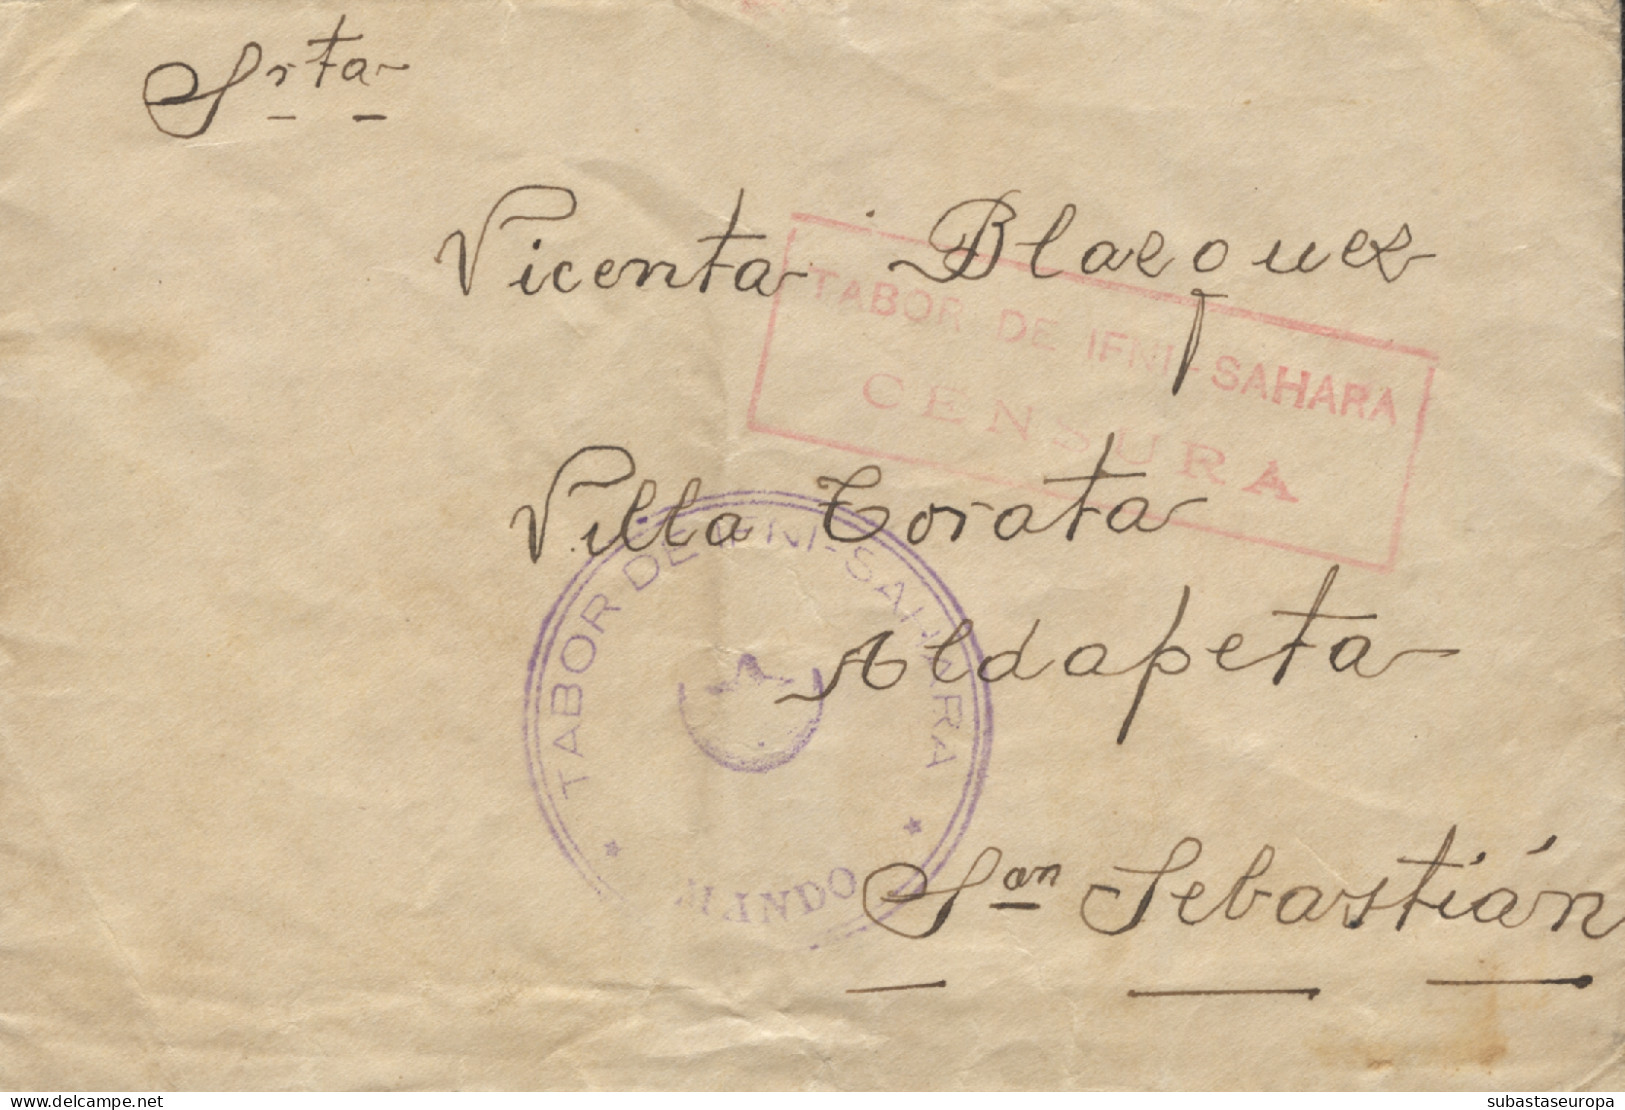 Srta
Vicenta Blazquez
TABOR DE IFNI-SAHARA
CENSURA
Villa Torata
Aldapeta
TABOR DE IFNI-SAHARA
San Sebastián
www.delcampe.net
subastaseuropa